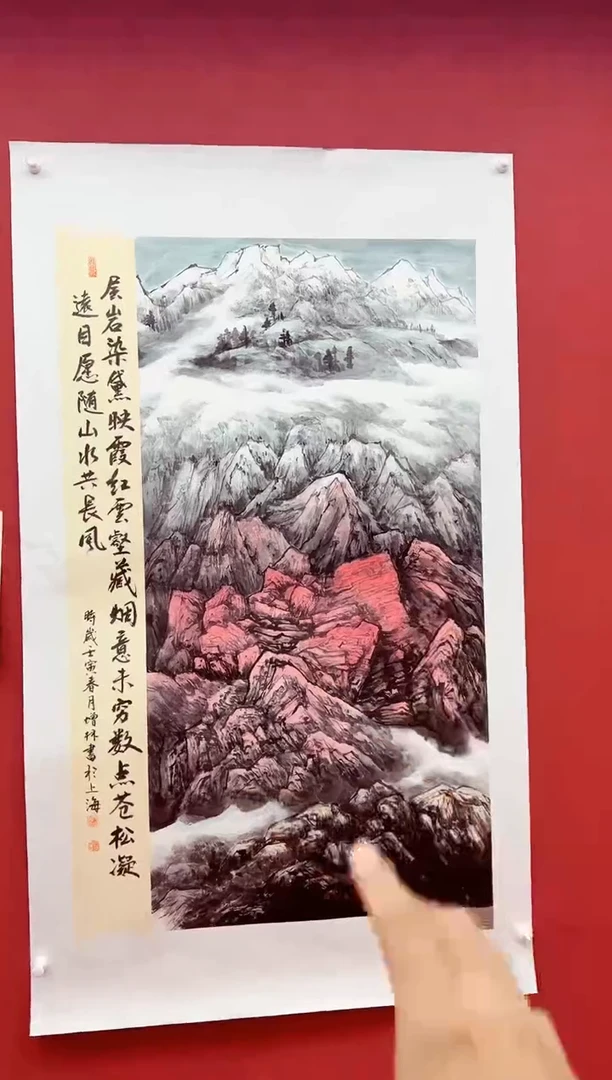 层岩染黛映霞红云壑藏烟意未穷数点苍松凝
遠目愿随山水共長风
時歲壬寅春月增林書於上海